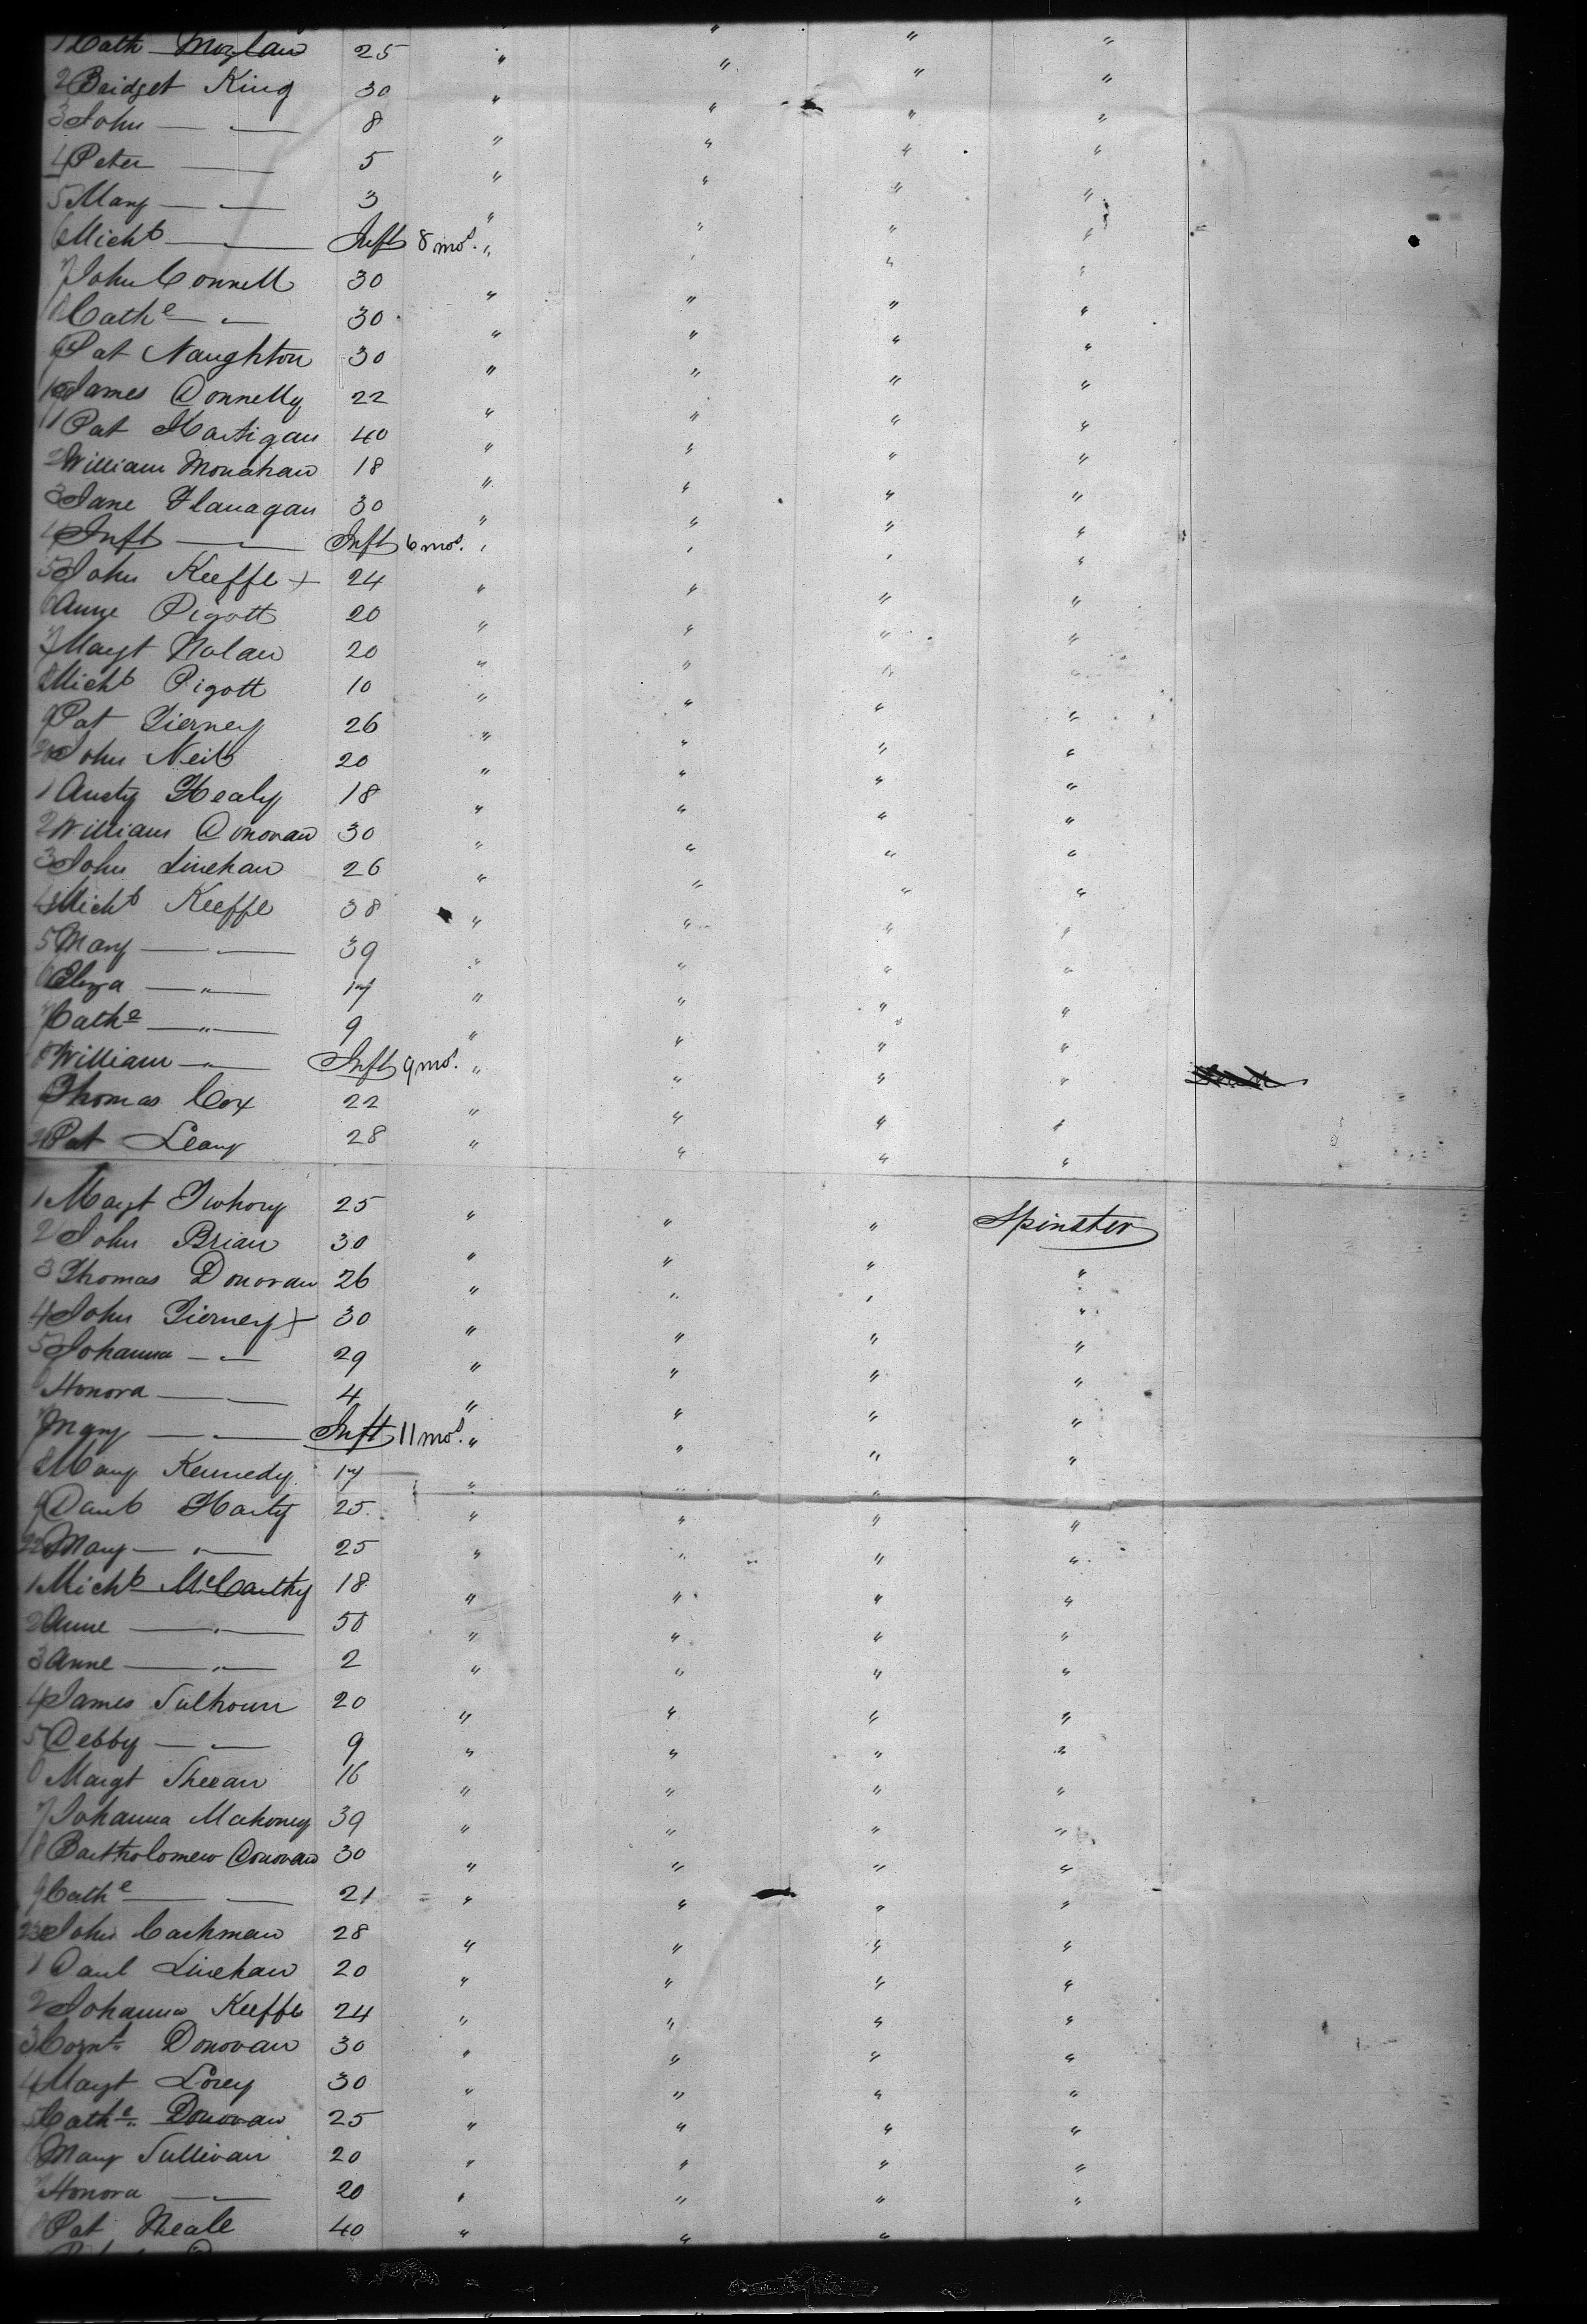 1 Cath Moylan 25 " " " "
2 Bridget King 30 " " " "
3 John — " — 8 " " " "
4 Peter — 5 " " " "
5 Mary — " — 3 " " " "
6 Michl — " — Inft 8 mos. " " " "
7 John Connell 30 " " " "
8 Cathe — " — 30 " " " "
9 Pat Naughton 30 " " " "
10 James Donnelly 22 " " " "
11 Pat Hartigan 40 " " " "
2 William Monahan 18 " " " "
3 Jane Flanagan 30 " " " "
4 Inft — " — Inft 6 mos. " " " "
5 John Keeffe + 24 " " " "
6 Anne Pigott 20 " " " "
7 Margt Nolan 20 " " " "
8 Michl Pigott 10 " " " "
9 Pat Tierney 26 " " " "
20 John Neil 20 " " " "
1 Austy Healy 18 " " " "
2 William Donovan 30 " " " "
3 John Linehan 26 " " " "
4 Michl Keeffe 38 " " " "
5 Mary — " — 39 " " " "
6 Eliza — " — 17 " " " "
7 Cathe — " — 9 " " " "
8 William — " — Inft 9 mos. " " " "
9 Thomas Cox 22 " " " "
Pat Leary 28 " " " "
1 Margt 25 " " " Spinster
2 John Brian 30 " " " "
3 Thomas Donovan 26 " " " "
4 John Tierney + 30 " " " "
5 Johanna — " — 29 " " " "
6 Honora — " — 4 " " " "
7 Mary — " — Inft 11 mos. " " " "
8 Mary Kennedy 17 " " " "
9 Danl Harty 25 " " " "
22 Mary — " — 25 " " " "
1 Michl McCarthy 18 " " " "
2 Anne — " — 50 " " " "
3 Anne — " — 2 " " " "
4 James 20 " " " "
5 Debby — " — 9 " " " "
6 Margt Sheean 16 " " " "
7 Johanna Mahoney 39 " " " "
8 Bartholomew Donovan 30 " " " "
9 Cathe — — 21 " " " "
23 John Cashman 28 " " " "
1 Danl Linehan 20 " " " "
2 Johanna Keeffe 24 " " " "
3 Donovan 30 " " " "
4 Margt 30 " " " "
5 Cathe Donovan 25 " " " "
6 Mary Sullivan 20 " " " "
7 Honora — " — 20 " " " "
8 Pat Neale 40 " " "